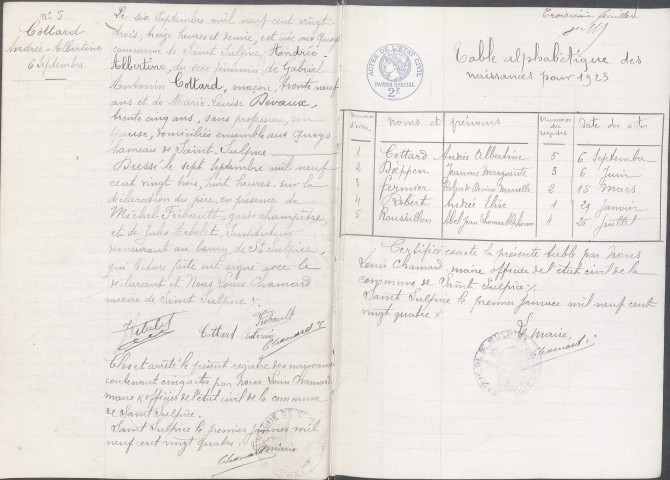 n° 5
Cottard
Andrée-Albertine
6 Septembre
Le six Septembre mil neuf cent vingt
trois, heures et demie, est née aux Quoys
commune de Saint Sulpice Andrée-
Albertine, du sexe féminin de Gabriel
Antonin Cottard, maçon, trente neuf
ans et de Marie-Louise Devaux,
trente cinq ans, sans profession, son
épouse, domiciliés ensemble aux Quoys
hameau de Saint-Sulpice.
Dressé le sept Septembre mil neuf
cent vingt trois, huit heures, sur la
déclaration du père, en présence de
Michel Tribault, garde champêtre,
et de Instituteur
demeurant au bourg de St Sulpice,
qui, lecture faite ont signé avec le
déclarant et Nous Louis Chamard
maire de Saint Sulpice
Cottard
Chamard
Clos et arrêté le présent registre des naissances
contenant cinq actes par Nous Louis Chamard
maire & officier de l'état civil de la commune
de Saint Sulpice.
Saint Sulpice le premier Janvier mil
neuf cent vingt quatre.
Chamard maire
Troisième feuillet
ACTES DE L'ETAT CIVIL
PAPIER SPECIAL
2F
Table alphabétique des
naissances pour 1923
Numéros d'ordre Noms et prénoms Numéros du registre Date des actes
1 Cottard Andrée Albertine 5 6 Septembre
2 Jeanne Marguerite 3 6 Juin
3 Marcelle 2 15 Mars
4 Robert Andrée Elise 1 29 Janvier
5 Roussillon Abel Jean 4 25 Juillet
Certifiée exacte la présente table par Nous
Louis Chamard, maire officier de l'état civil de la
commune de Saint Sulpice
Saint Sulpice le premier Janvier mil neuf cent
vingt quatre
Le Maire,
Chamard